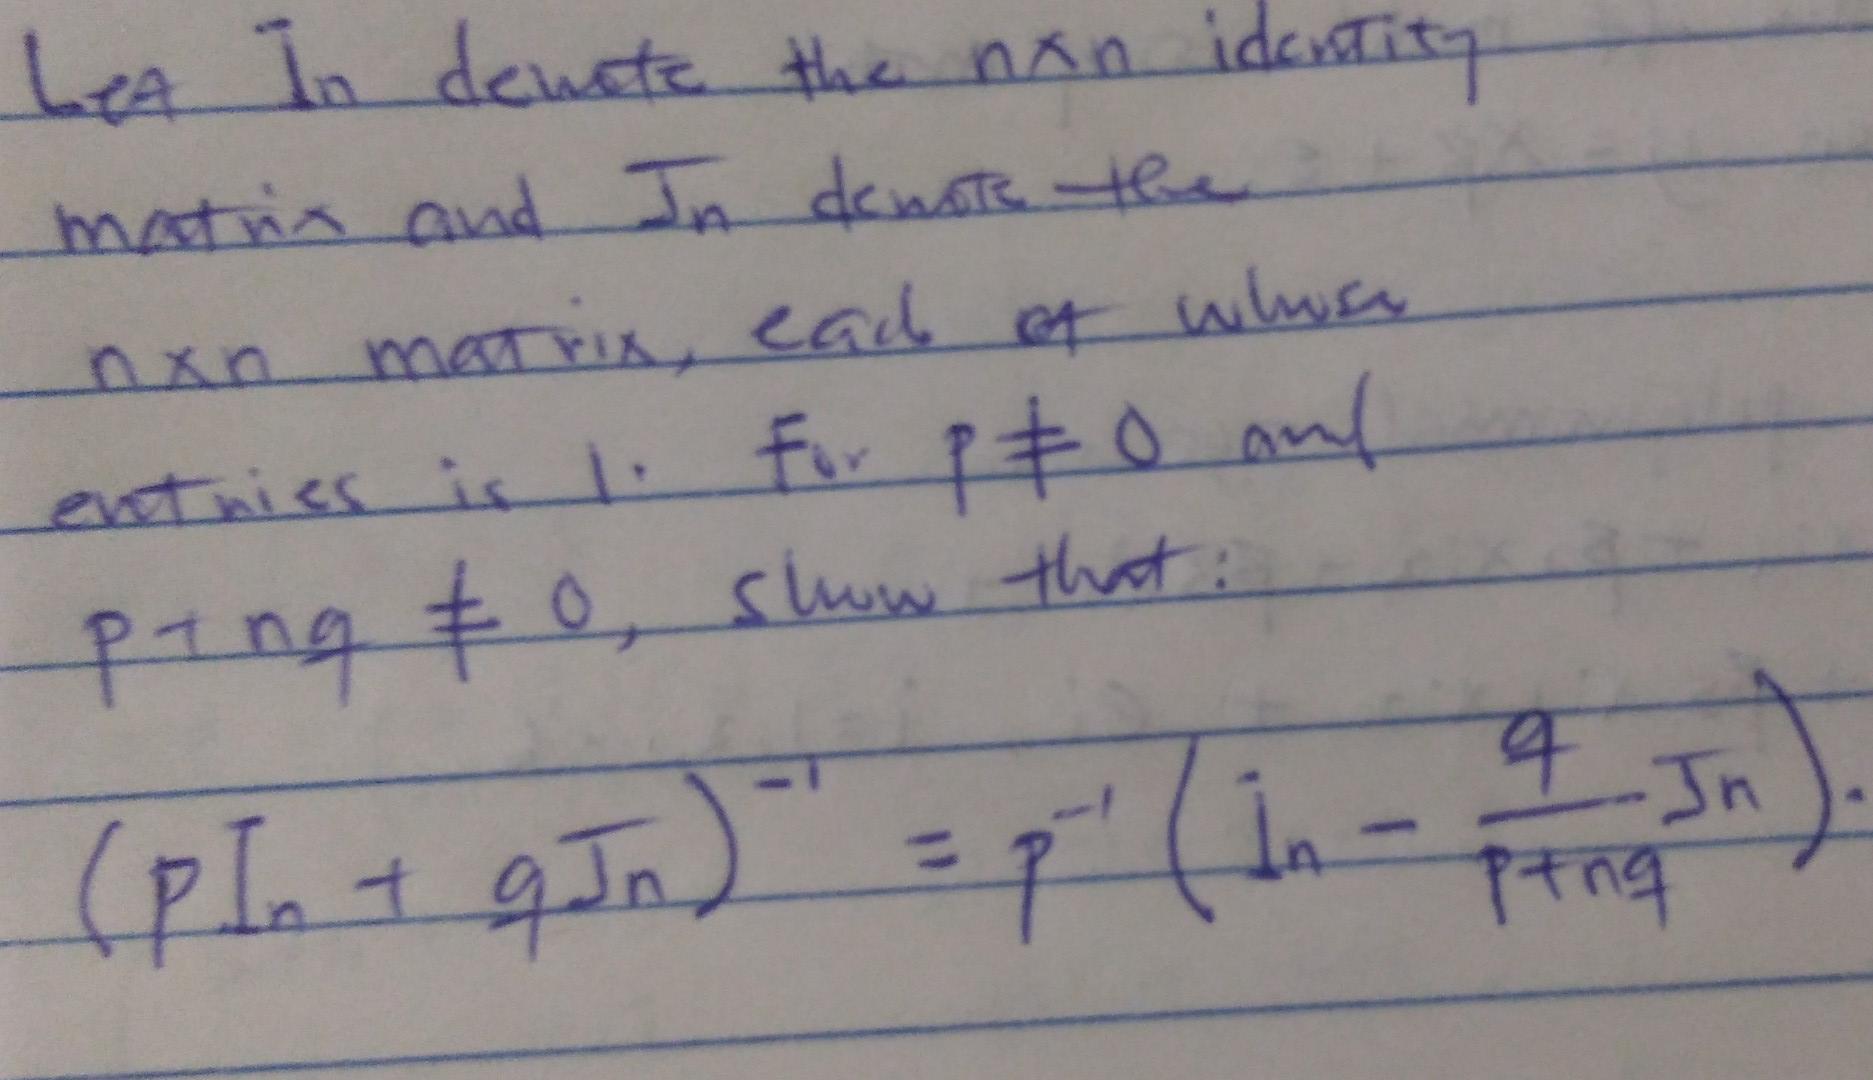 Let In denote the n×n identity
matrix and Jn denote the
n×n matrix, each of whose
entries is 1. For p ≠ 0 and
p+nq ≠ 0, show that:
(pIn + qJn)^-1 = p^-1 (In - q/(p+nq) Jn).